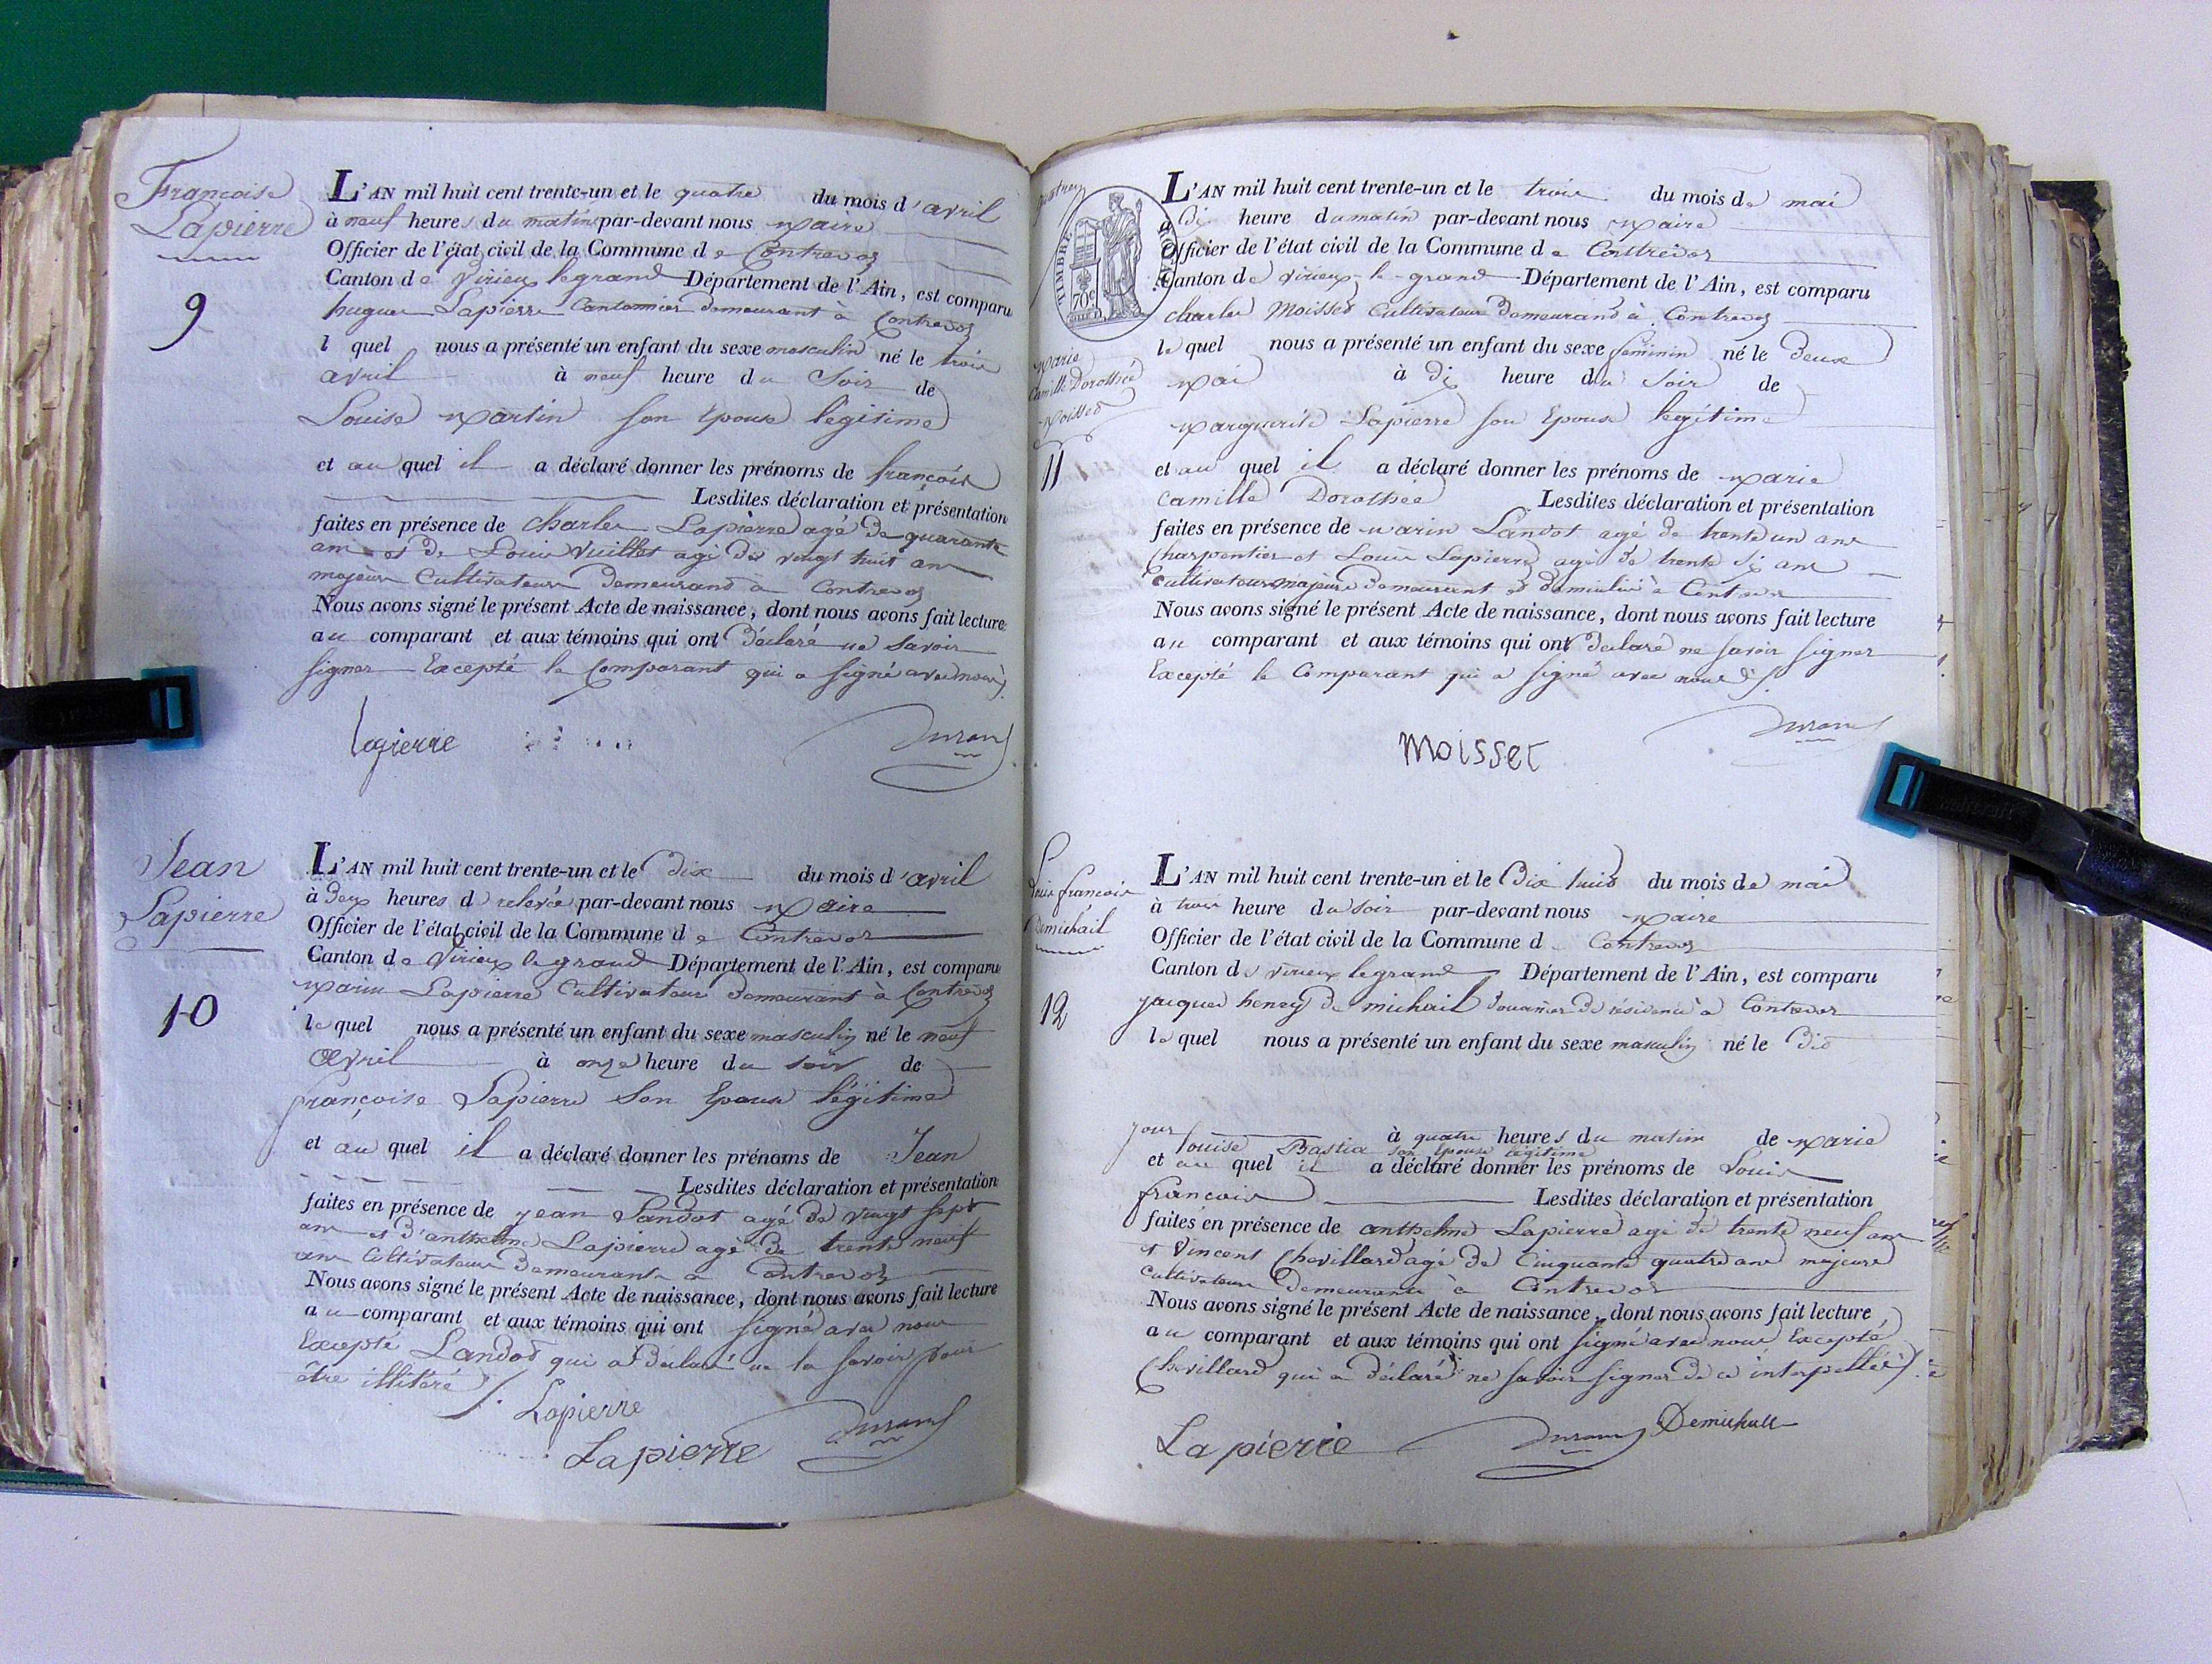 Françoise
Lapierre
9
L'AN mil huit cent trente-un et le quatre du mois d'avril
à neuf heures du matin par-devant nous Maire
Officier de l'état civil de la Commune de Contrevoz
Canton de Virieux legrand Département de l'Ain, est comparu
hugues Lapierre Cantonnier demeurant à Contrevoz
l quel nous a présenté un enfant du sexe masculin né le trois
avril à neuf heure du Soir de
Louise Martin son Epouse légitime
et au quel il a déclaré donner les prénoms de françois
Lesdites déclaration et présentation
faites en présence de Charles Lapierre agé de quarante
ans et de Louis Vuillet agé de vingt huit ans
majeurs Cultivateurs demeurand à Contrevoz
Nous avons signé le présent Acte de naissance, dont nous avons fait lecture
au comparant et aux témoins qui ont déclaré ne Savoir
signer Excepté le Comparant qui a signé avec nous
lapierre Durand
Jean
Lapierre
10
L'AN mil huit cent trente-un et le Dix du mois d'avril
à deux heures d relevée par-devant nous Maire
Officier de l'état civil de la Commune de Contrevoz
Canton de Virieux le grand Département de l'Ain, est comparu
Marin Lapierre Cultivateur demeurant à Contrevoz
le quel nous a présenté un enfant du sexe masculin né le neuf
avril à onze heure du soir de
françoise Lapierre Son Epouse légitime
et au quel il a déclaré donner les prénoms de Jean
Lesdites déclaration et présentation
faites en présence de jean Landot agé de vingt sept
ans et d'anthelme Lapierre agé de trente neuf
ans Cultivateurs demeurants a Contrevoz
Nous avons signé le présent Acte de naissance, dont nous avons fait lecture
au comparant et aux témoins qui ont signé avec nous
Excepté Landot qui a déclaré ne le savoir pour
être illitéré
Lapierre
Lapierre Durand
TIMBRE
70c
Marie
Camille Dorothée
Moisset
11
L'AN mil huit cent trente-un et le trois du mois de mai
a dix heure du matin par-devant nous Maire
Officier de l'état civil de la Commune de Contrevoz
Canton de virieux-le-grand Département de l'Ain, est comparu
charles Moisset Cultivateur demeurand à Contrevoz
le quel nous a présenté un enfant du sexe feminin né le deux
Mai à dix heure du Soir de
Marguerite Lapierre son Epouse legitime
et au quel il a déclaré donner les prénoms de Marie
Camille Dorothée Lesdites déclaration et présentation
faites en présence de Marin Landot agé de trente un ans
Charpentier et Louis Lapierre agé de trente six ans
Cultivateurs majeurs demeurant et domicilié à Contrevoz
Nous avons signé le présent Acte de naissance, dont nous avons fait lecture
au comparant et aux témoins qui ont déclaré ne savoir signer
Excepté le Comparant qui a signé avec nous
Durand
moisset
Louis françois
Demichail
12
L'AN mil huit cent trente-un et le Dix huit du mois de mai
à trois heure du soir par-devant nous Maire
Officier de l'état civil de la Commune d Contrevoz
Canton de virieux legrand Département de l'Ain, est comparu
jacques henry de michail douanier de résidence à Contrevoz
le quel nous a présenté un enfant du sexe masculin né le dit
jour à quatre heures du matin de Marie
Louise Bastia son Epouse légitime
et au quel il a déclaré donner les prénoms de Louis
françois Lesdites déclaration et présentation
faites en présence de anthelme Lapierre agé de trente neuf ans
et Vincent Chevillard agé de Cinquante quatre ans majeurs
Cultivateurs demeurants à Contrevoz
Nous avons signé le présent Acte de naissance, dont nous avons fait lecture
au comparant et aux témoins qui ont signé avec nous Excepté
Chevillard qui a déclaré ne savoir signer de ce interpellé
Lapierre Durand Demichail